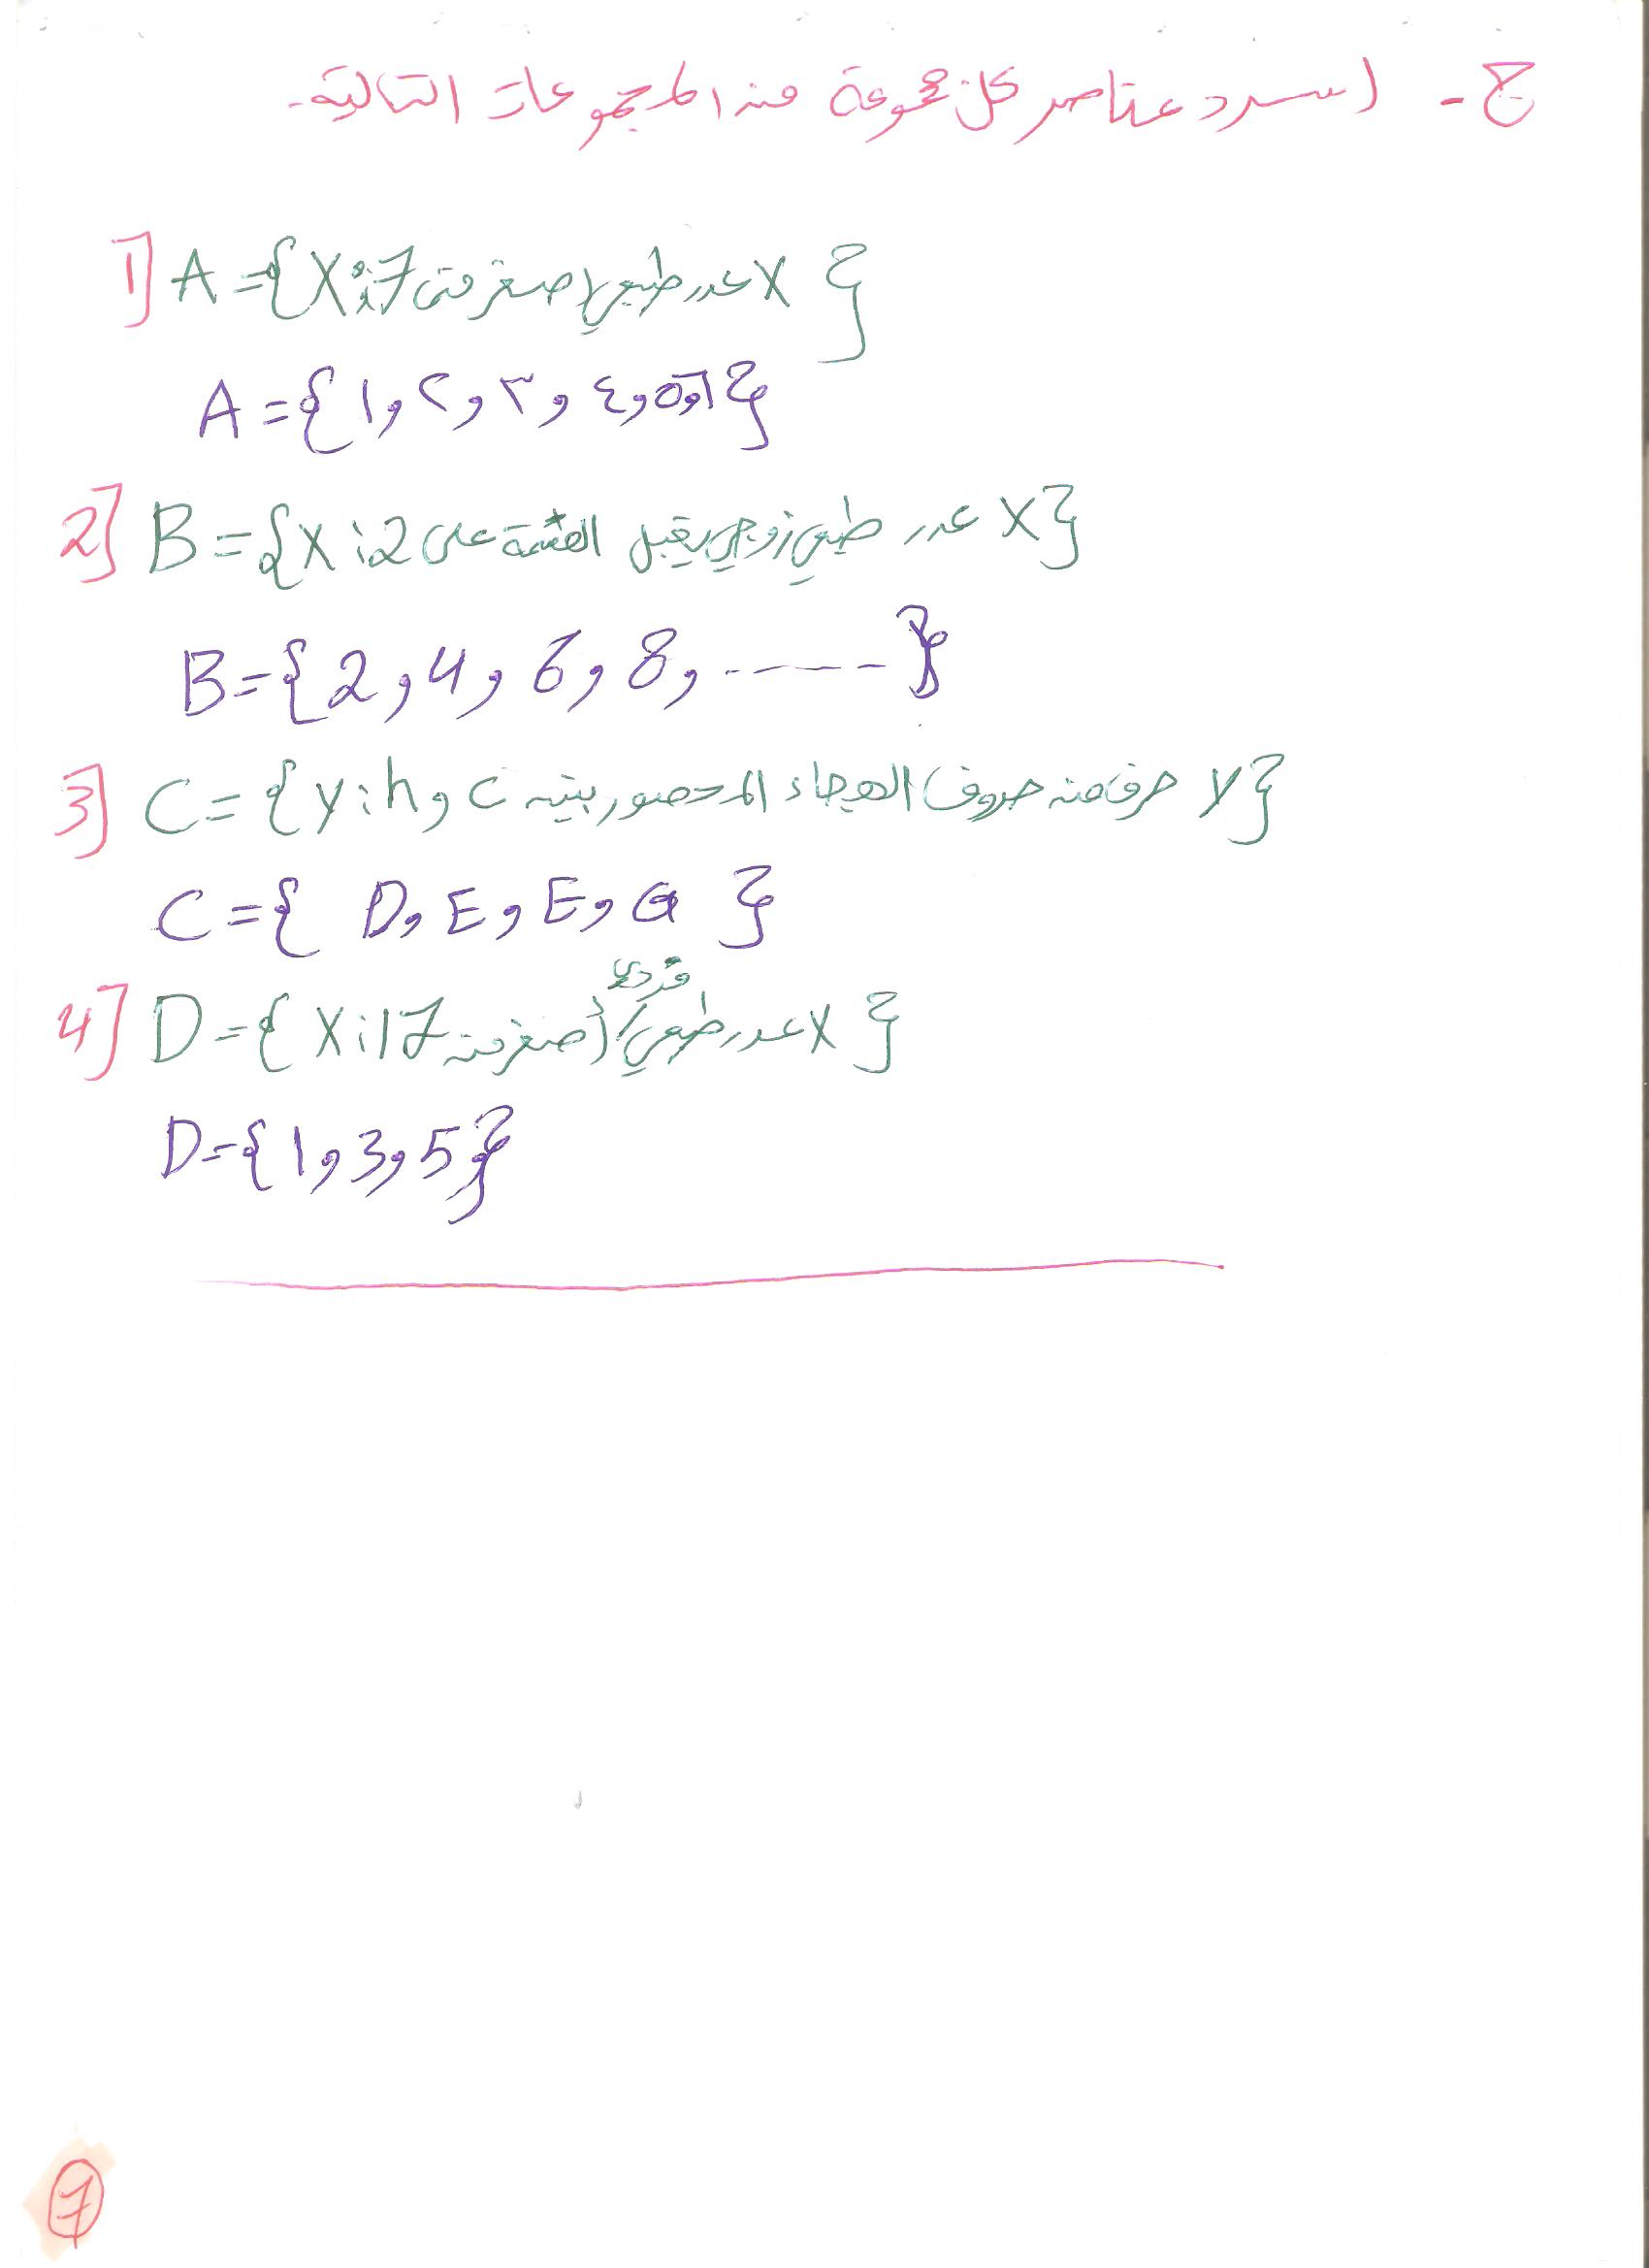 ج - اسرد عناصر كل مجموعة من المجموعات التالية.
1] A = {X : 7 عدد طبيعي أصغر من X }
A = {١, ٢, ٣, ٤, ٥, ٦}
2] B = {X : 2 عدد طبيعي زوجي يقبل القسمة على X}
B = {2, 4, 6, 8, ------}
3] C = {y : h و c حرف من حروف الهجاء المحصور بين y}
C = { D, E, E, G }
4] D = { X : 17 عدد طبيعي فردي أصغر من X }
D = {1, 3, 5}
7